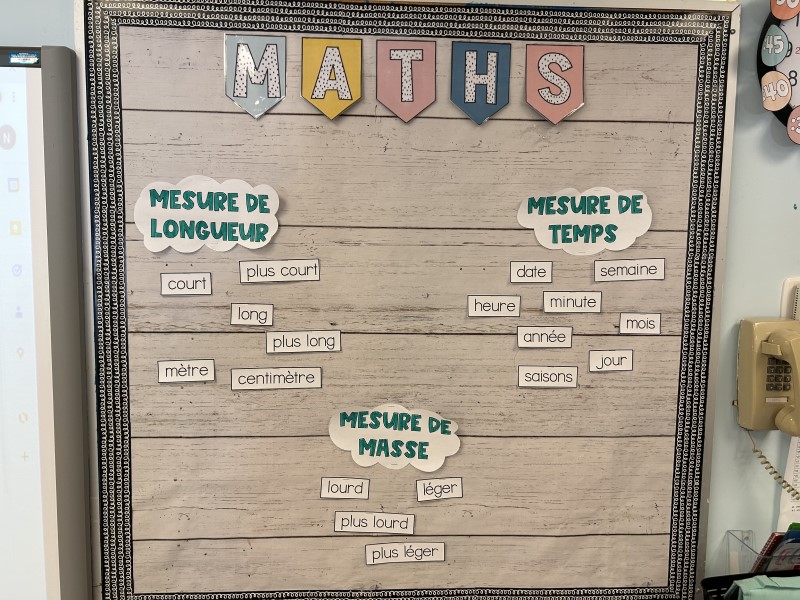 MATHS
MESURE DE
LONGUEUR
court
plus court
long
plus long
mètre
centimètre
MESURE DE
TEMPS
date
semaine
heure
minute
mois
année
jour
saisons
MESURE DE
MASSE
lourd
léger
plus lourd
plus léger
45
40
N